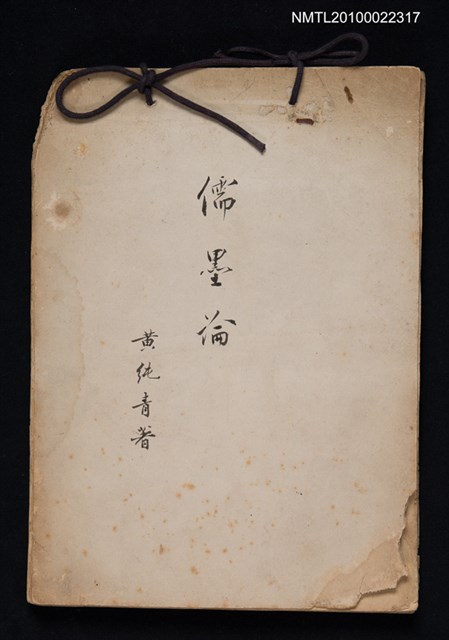 NMTL20100022317
儒墨論
黃純青著